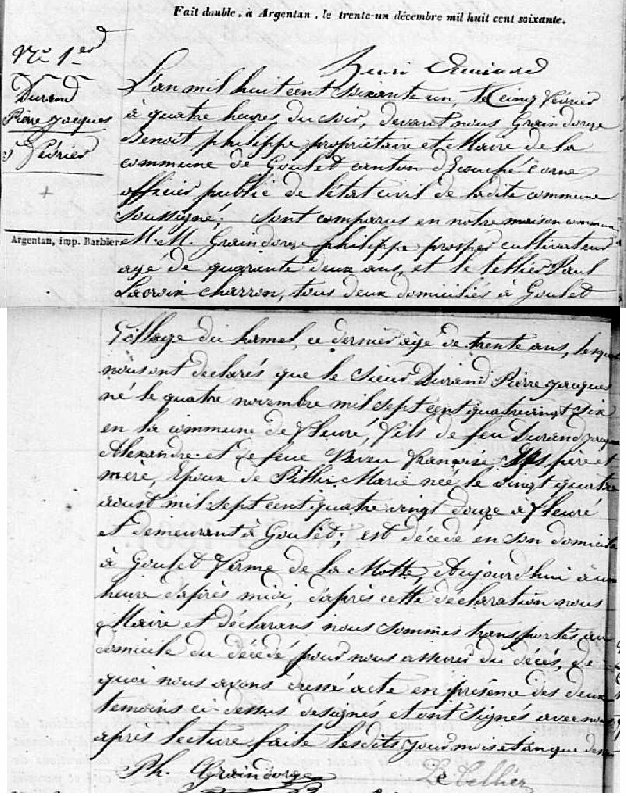 Fait double, à Argentan, le trente-un décembre mil huit cent soixante.
N° 1er
Durand
Pierre Jacques
5 Février
L'an mil huit cent soixante un, le cinq février
à quatre heures du soir, devant nous Graindorge
Benoit philippe propriétaire et Maire de la
commune de Goulet canton d'Ecouché Orne
officier public de l'état civil de ladite commune
soussigné. Sont comparus en notre maison commune
Argentan, imp. Barbier
M.M. Graindorge philippe prosper cultivateur
agé de quarante deux ans, et le tellier Paul
charron, tous deux domiciliés à Goulet
Village du hamel, ce dernier âgé de trente ans, lesquels
nous ont déclarés que le sieur Durand Pierre jacques
né le quatre novembre mil sept cent quatre vingt dix
en la commune de fleuré, fils de feu Durand jacques
Alexandre et de feue françoise ses père et
mère, Epoux de Marie née le vingt quatre
aoust mil sept cent quatre vingt douze a fleuré
et demeurant à Goulet; est décédé en son domicile
à Goulet ferme de la Motte, Aujourd'hui à une
heure d'après midi, d'après cette déclaration nous
Maire et déclarans nous sommes transportés au
domicile du décédé pour nous assurer du décès, de
quoi nous avons dressé acte en présence des deux
temoins ci-dessus designés et ont signés avec nous
après lecture faite lesdits jour mois et an que dessus
Ph. Graindorge Le Tellier